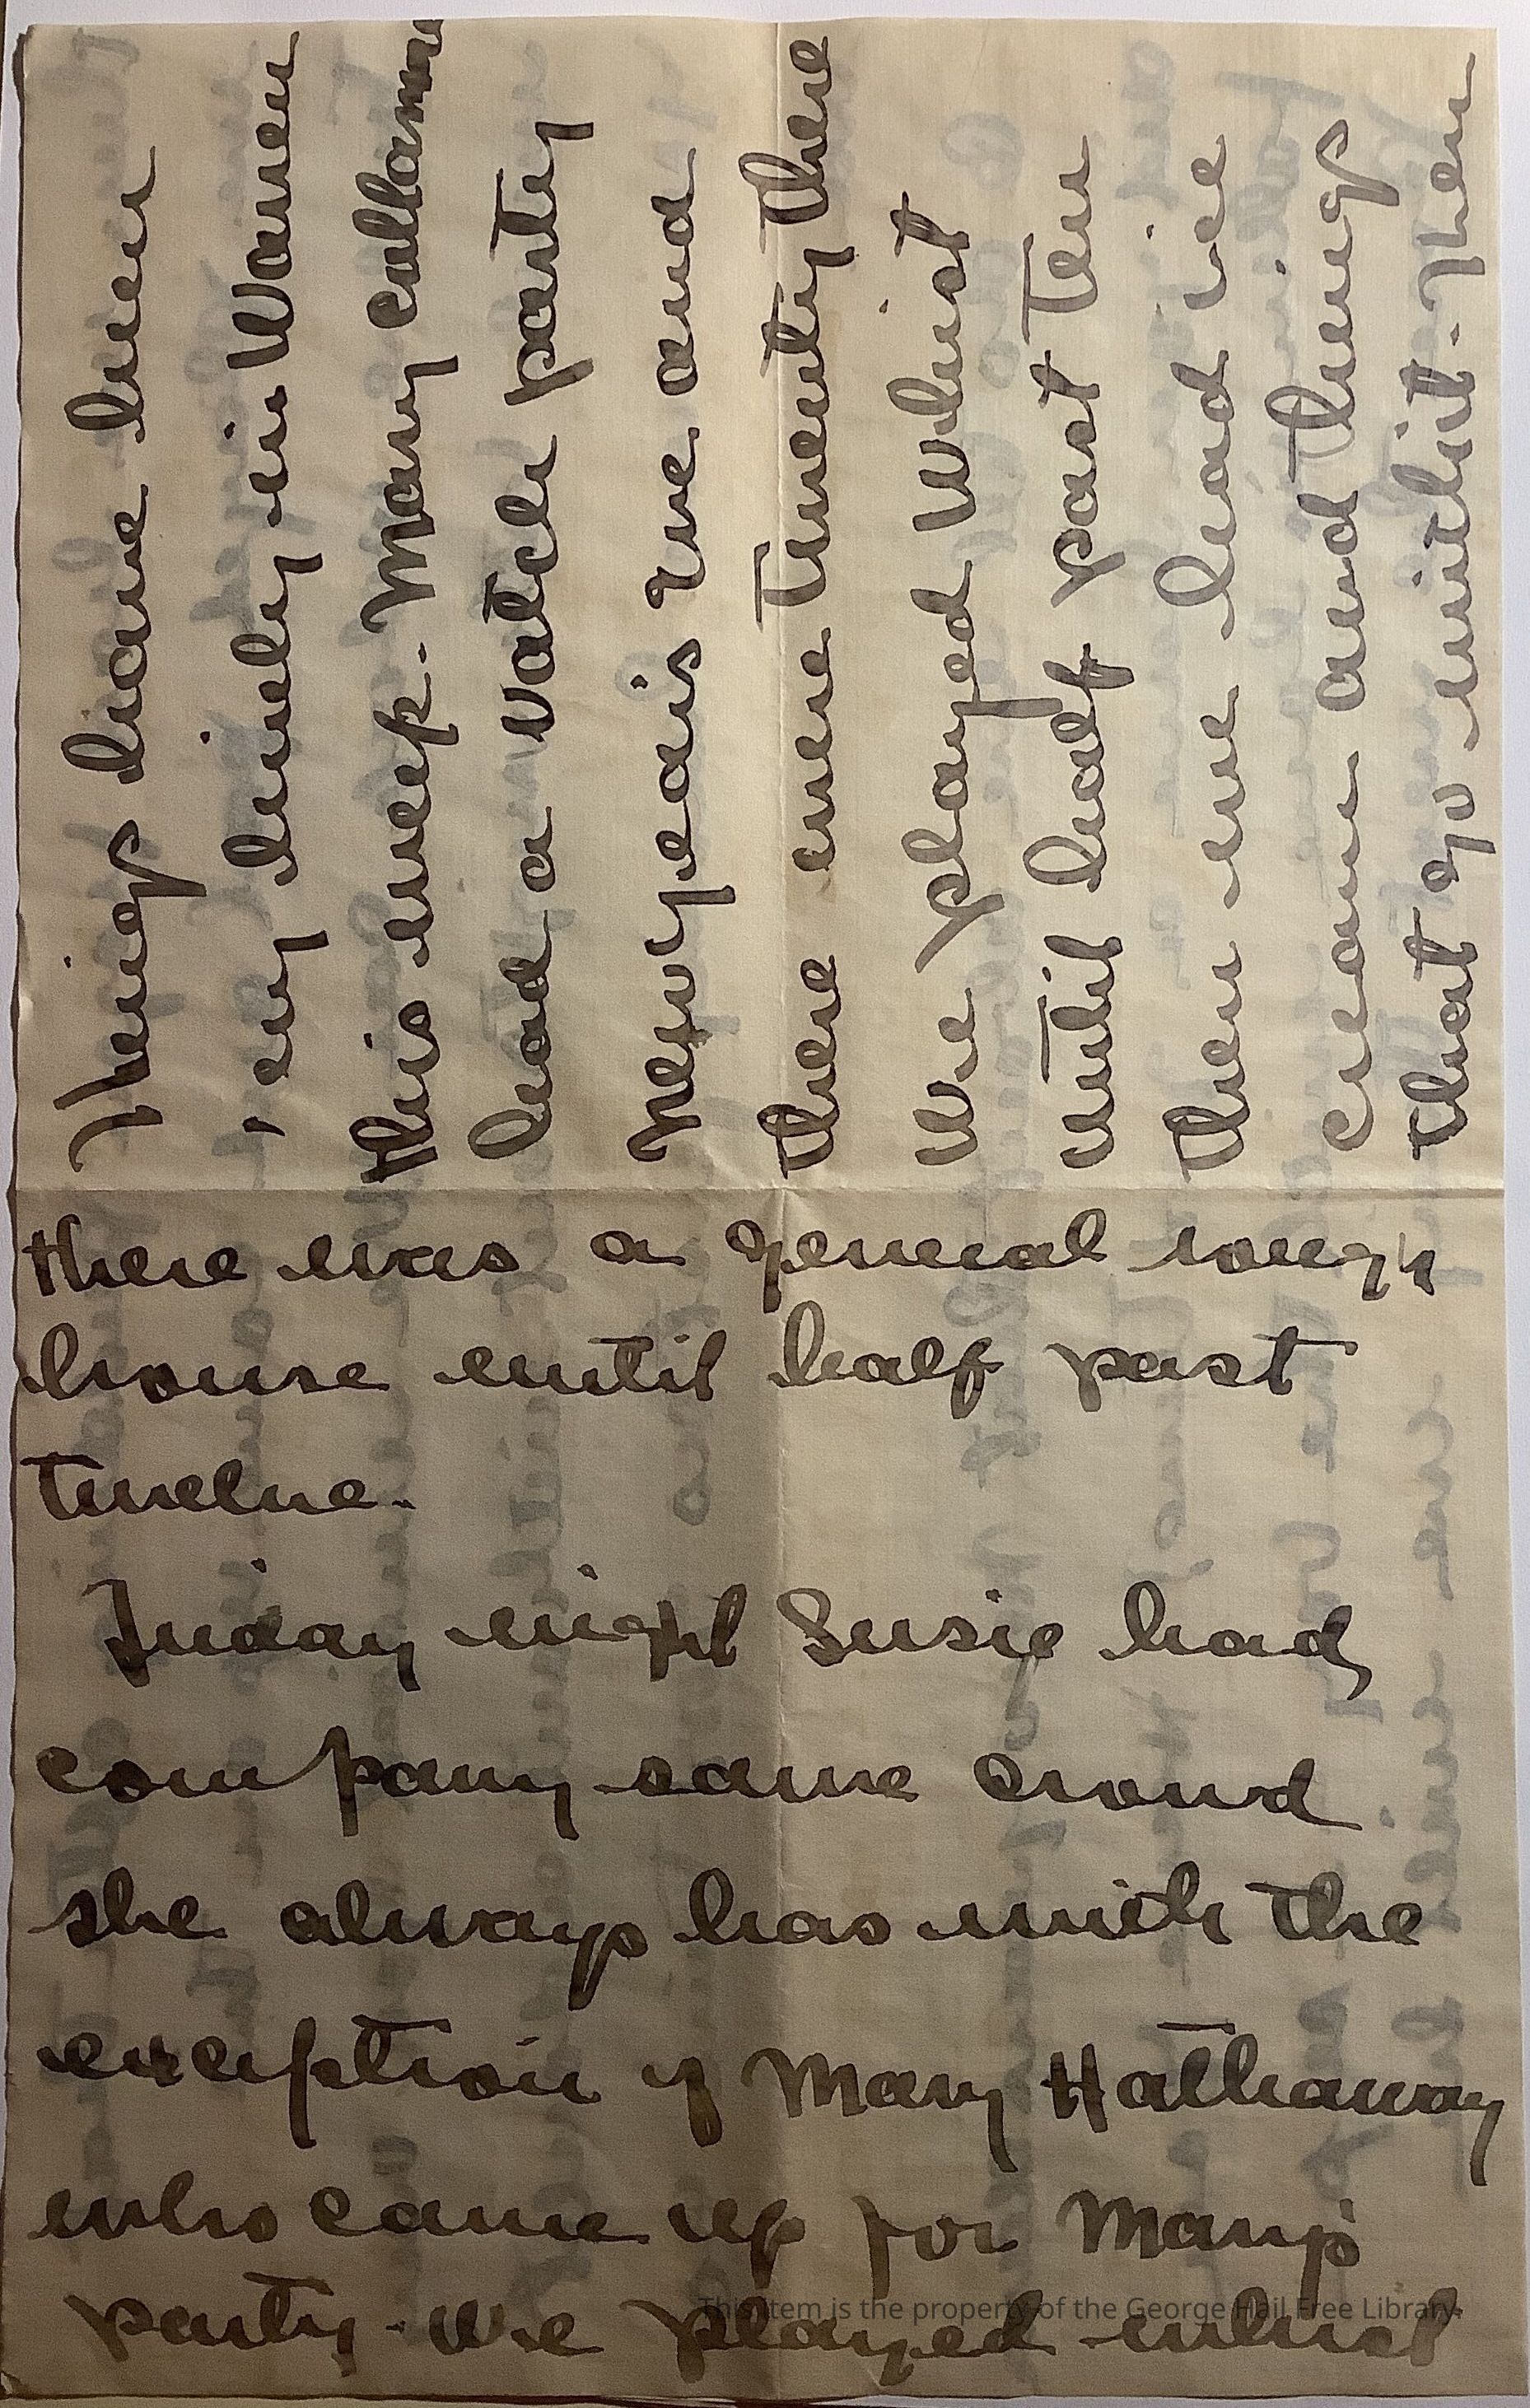 Things have been
very lively in Warren
this week. Mary
had a watch party
New years Eve and
there were twenty there
We played Whist
until half past ten
then we had ice
cream and things
that go with it. Then
there was a general rough
house until half past
twelve.
Friday night Susie had
company same crowd
she always has with the
exception of Mary Hathaway
who came up for Mary's
party. We played whist
This item is the property of the George Hail Free Library.